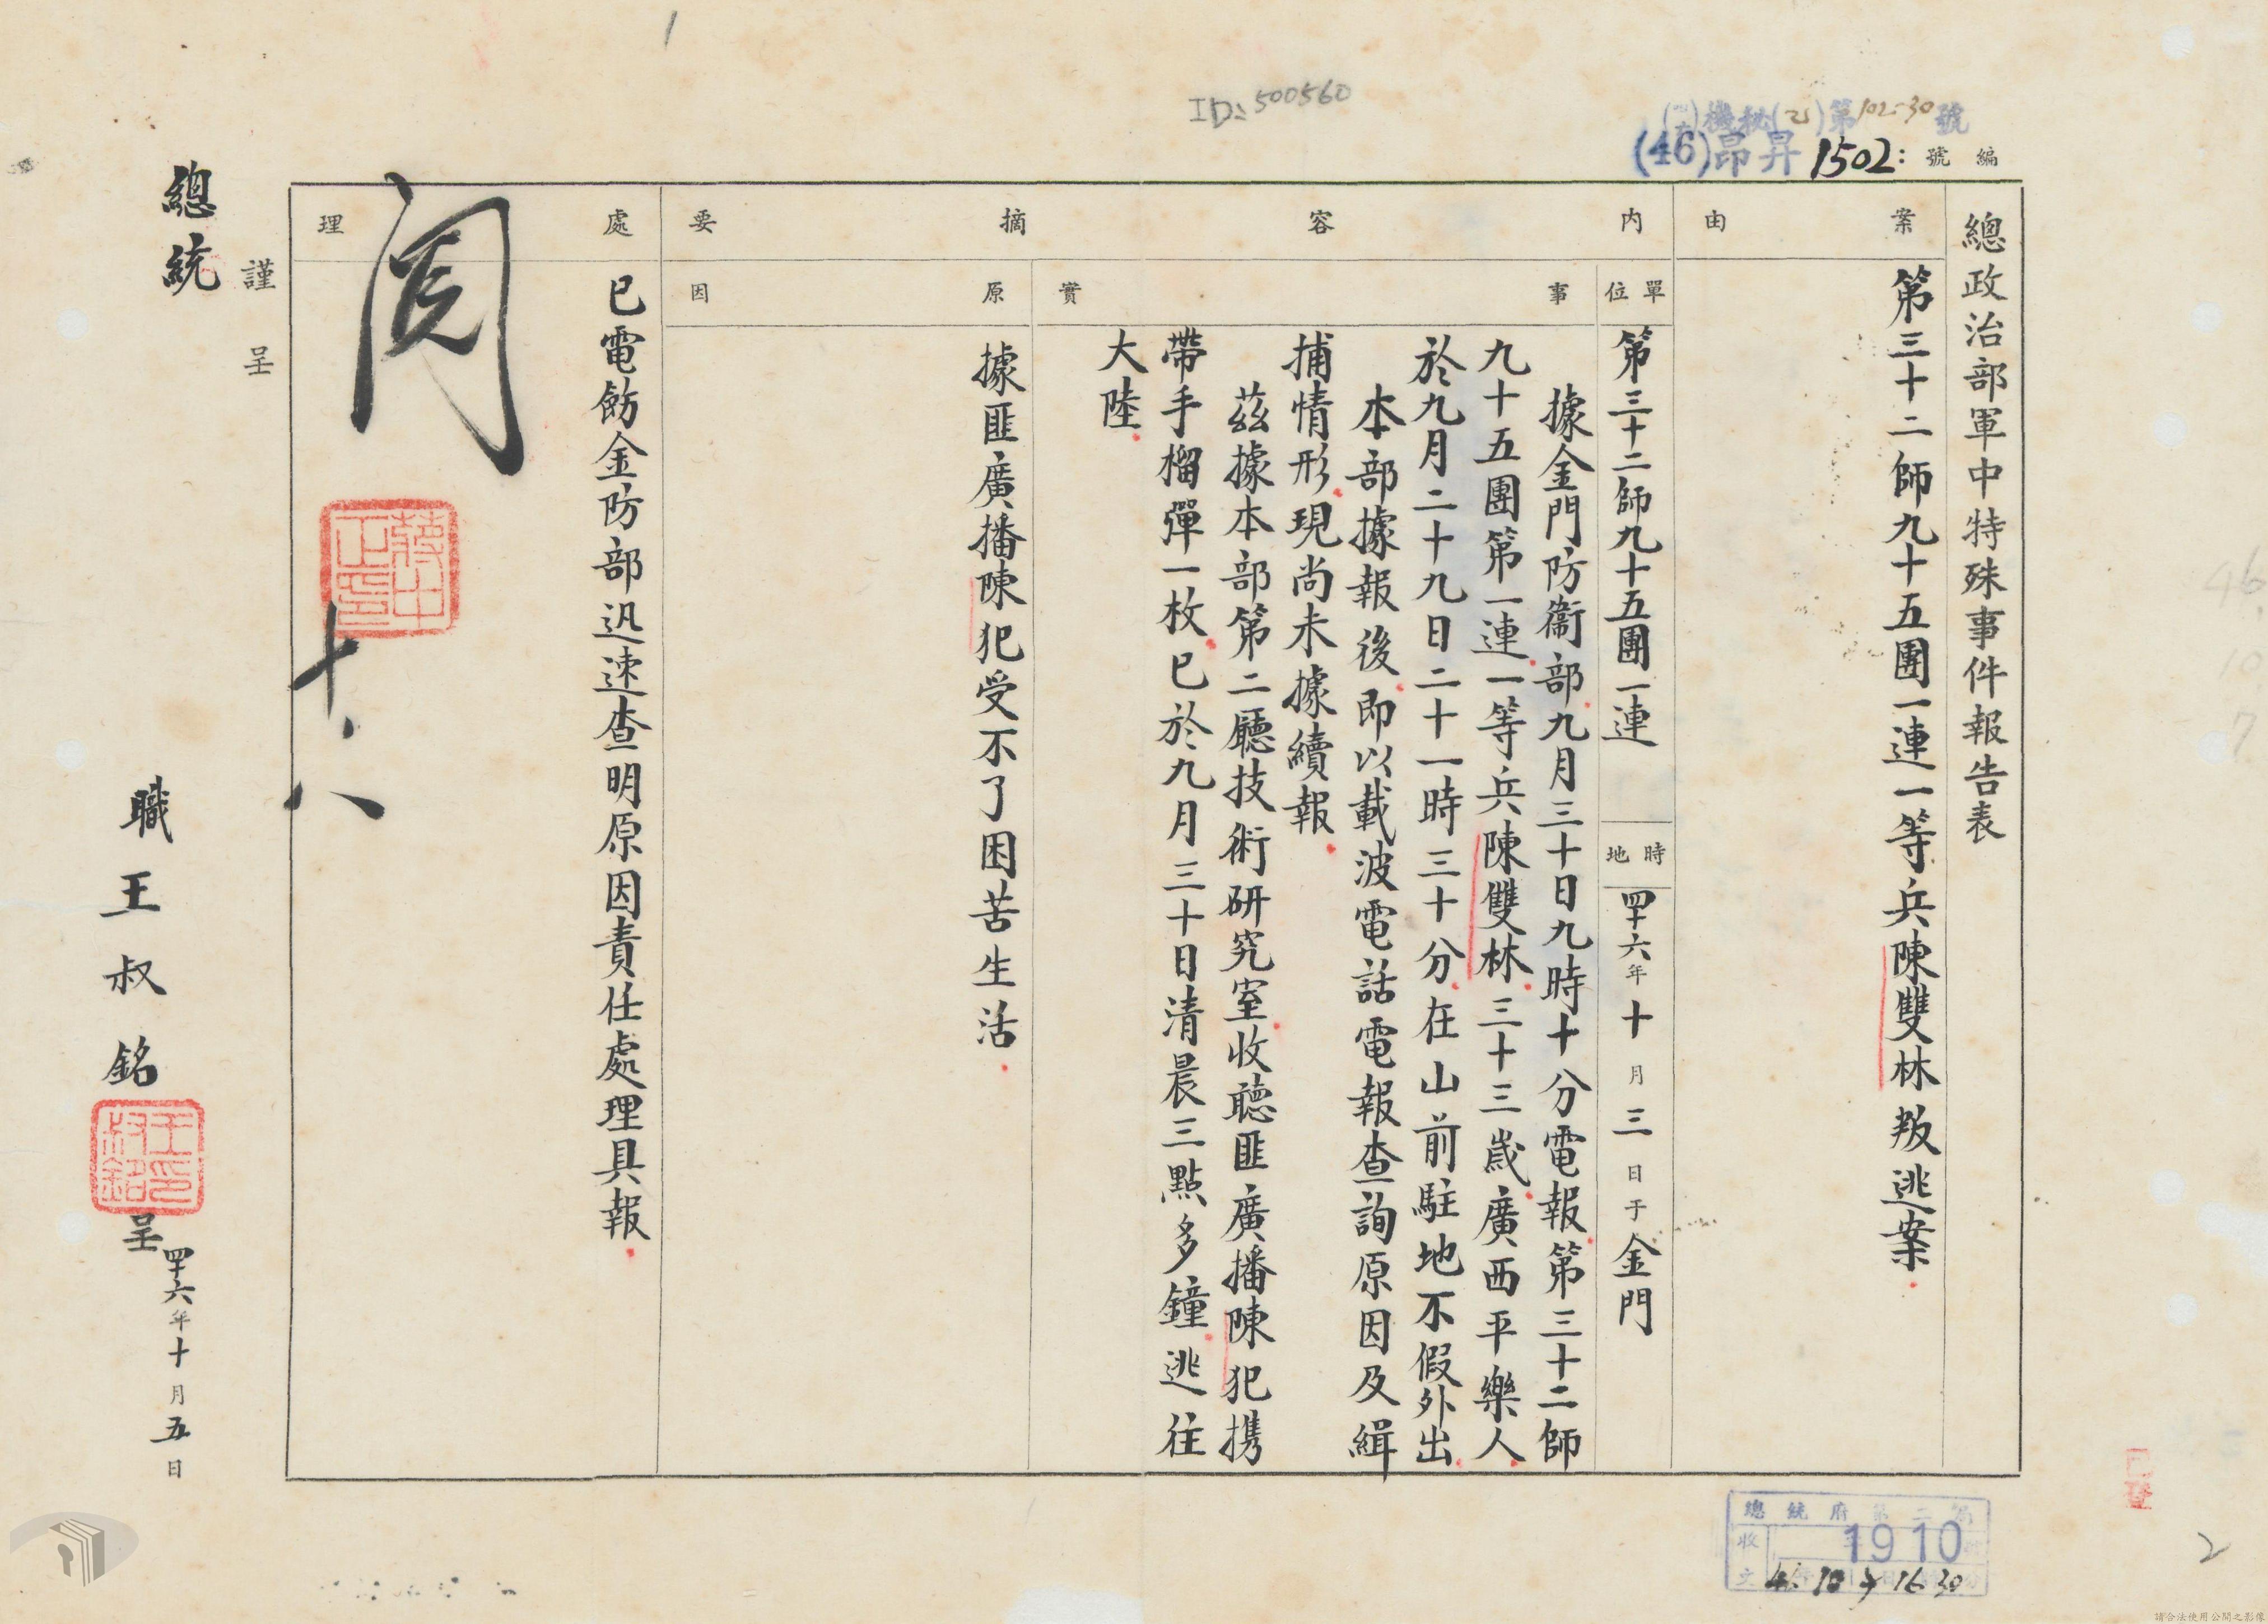 ID:500560
機秘(乙)第102-30號
編號：(46)昂昇1502
總政治部軍中特殊事件報告表
案由
第三十二師九十五團一連一等兵陳雙林叛逃案
內容摘要
單位
第三十二師九十五團一連
時地
四十六年十月三日于金門
事實
據金門防衛部九月三十日九時十分電報第三十二師
九十五團第一連一等兵陳雙林三十三歲廣西平樂人
於九月二十九日二十一時三十分在山前駐地不假外出
本部據報後即以載波電話電報查詢原因及緝
捕情形現尚未據續報
茲據本部第二廳技術研究室收聽匪廣播陳犯携
帶手榴彈一枚已於九月三十日清晨三點多鐘逃往
大陸
原因
據匪廣播陳犯受不了困苦生活
處理
已電飭金防部迅速查明原因責任處理具報
閱
蔣中正印
十、八
謹呈
總統
職王叔銘
王叔銘印
呈
四十六年十月五日
總統府第二局
收文
1910
46
10
7
16 30
1
2
請合法使用公開之影像